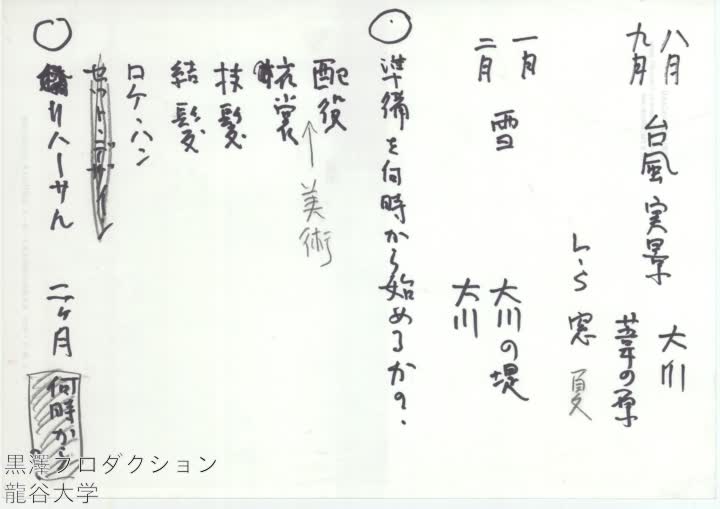 八月
九月
台風 実景
大川
葦の原
窓 夏
一月
二月
雪
大川の堤
大川
○ 準備を何時から始めるかの。
配役
美術
衣裳
扶髪
結髪
ロケ・ハン
セット・デザイン
○ リハーサル 二ヶ月 何時から
黒澤プロダクション
龍谷大学